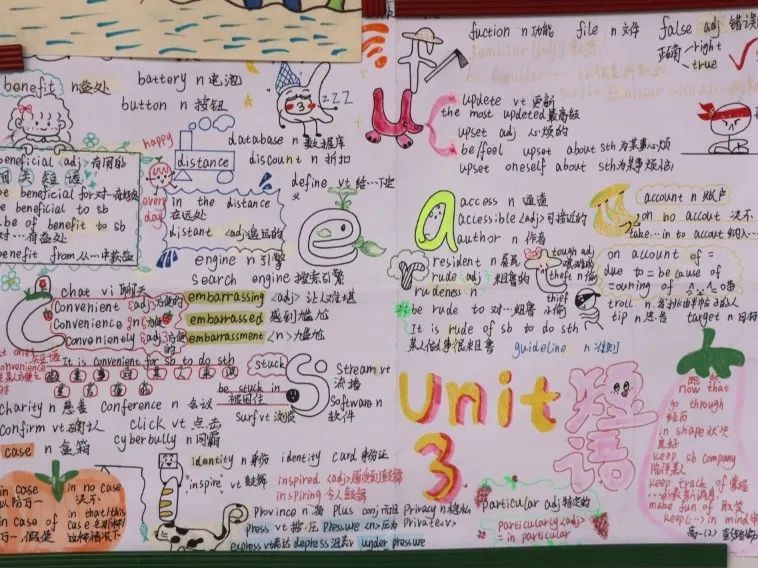 benefit n 益处
battery n 电池
button n 按钮
zzz
3
beneficial <adj> 有用的
be beneficial for 对…有益处
be beneficial to sb
be of benefit to sb
对…有益处
benefit from 从…中获益
happy
every
day
distance
database n 数据库
discount n 折扣
define vt 给…下定义
in the distance
在远处
distant <adj> 遥远的
e
engine n 引擎
search engine 搜索引擎
C
chat vi 聊天
Convenient <adj> 方便的
Convenience n 方便
Conveniently adj 方便的
It is convenient for sb to do sth
embarrassing <adj> 让人难堪
embarrassed 感到尴尬
embarrassment <n> 尴尬
stuck
be stuck in
被困住
S
Stream vt
流播
Software n
软件
surf vt 浏览
charity n 慈善
Conference n 会议
confirm vt 确认
click vt 点击
cyberbully n 网霸
case n 盒箱
in case
in no case
决不
in that/this
case
in case of
identity n 身份
identity card 身份证
inspire vt 鼓舞
inspired <adj> 感到鼓舞
inspiring 令人鼓舞
Province n 省
Plus conj 而且
Privacy n 隐私
Private <v>
press vt 按压
Pressure <n> 压力
express vt 表达
depress 沮丧 v
under pressure
fuction n 功能
file n 文件
false adj 错误
正确
right
true
U
updete vt 更新
the most updeted 最高级
upset adj 心烦的
be/feel upset about sth 为某事心烦
upset oneself about sth 为某事烦恼
a
access n 通道
accessible <adj> 可接近的
author n 作者
account n 账户
on no accout 决不
take…in to accout
on allount of =
due to = be cause of
= owning of
r
resident n 居民
rude adj 粗鲁的
rudeness n
be rude to 对…粗鲁
It is rude of sb to do sth
某人做某事很粗鲁
guideline n 准则
t
tough adj
theft n 偷
thief
小偷
troll n
tip n 忠告
target n 目标
Unit
3
短语
now that
go through
经历
in shape 状况
良好
keep sb company
陪伴某人
keep track of 掌握
make fun of 取笑
keep … in mind
高一(2)
particular adj 特定的
particularly <adj>
= in particular